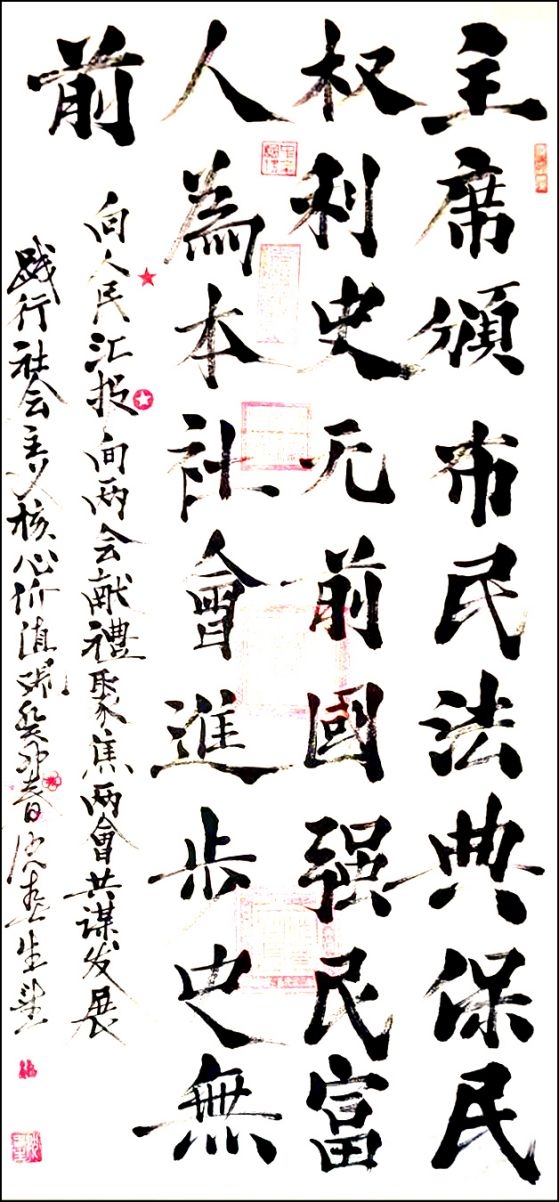 主席頒布民法典保民
权利史无前國强民富
人為本社會進步史無
前
向人民汇报向两会献禮聚焦两會共谋发展
践行社会主义核心价值观癸卯春